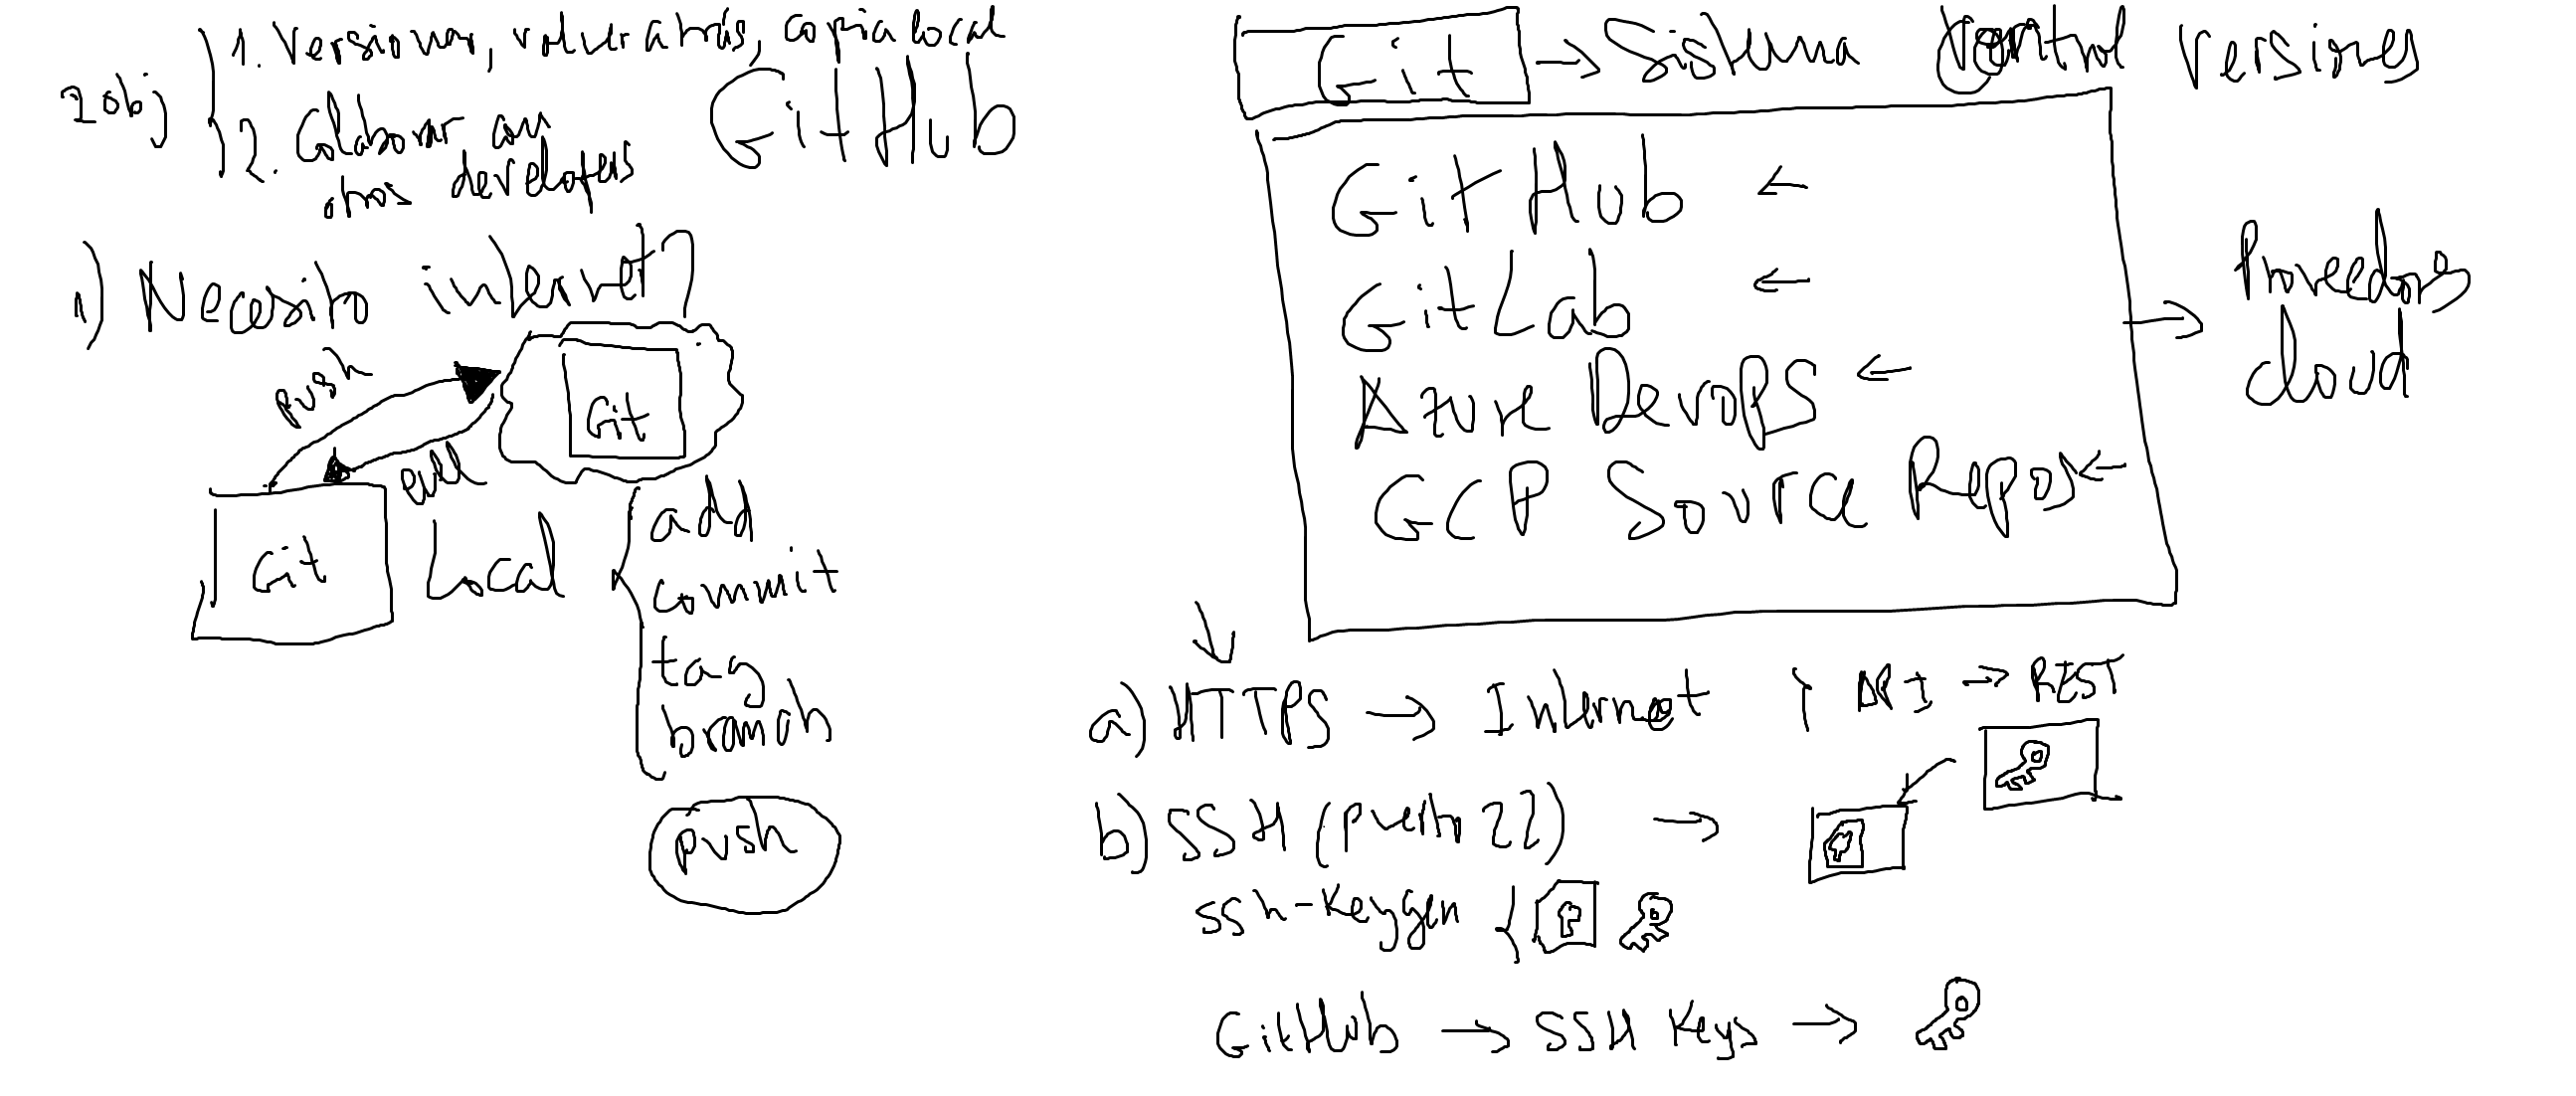 2 obj
1. Versionar, volver atrás, copia local
2. Colaborar con
otros developers
GitHub
1) Necesito internet?
push
Git
pull
Git
Local
add
commit
tag
branch
push
Git → Sistema Control Versiones
GitHub ←
GitLab ←
Azure DevOps ←
GCP Source Repos ←
→ Proveedores
cloud
a) HTTPS → Internet } API → REST
b) SSH (puerto 22) →
ssh-keygen {
GitHub → SSH Keys →